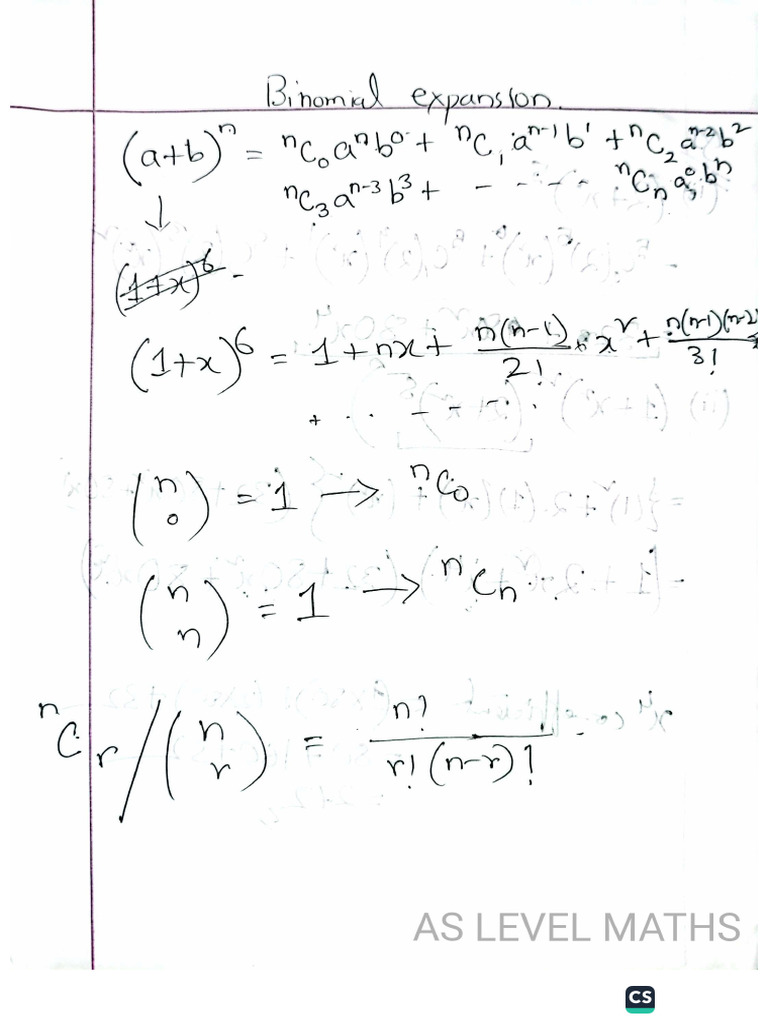 Binomial expansion.
(a+b)ⁿ = ⁿC₀aⁿb⁰ + ⁿC₁aⁿ⁻¹b¹ + ⁿC₂aⁿ⁻²b²
ⁿC₃aⁿ⁻³b³ + - - - - ⁿCₙa⁰bⁿ
↓
(1+x)⁶ -
(1+x)⁶ = 1 + nx + n(n-1)/2! · x² + n(n-1)(n-2)/3!
+ . . - - - -
(n 0) = 1 → ⁿC₀
(n n) = 1 → ⁿCₙ
ⁿCᵣ / (n r) = n! / r! (n-r)!
AS LEVEL MATHS
CS